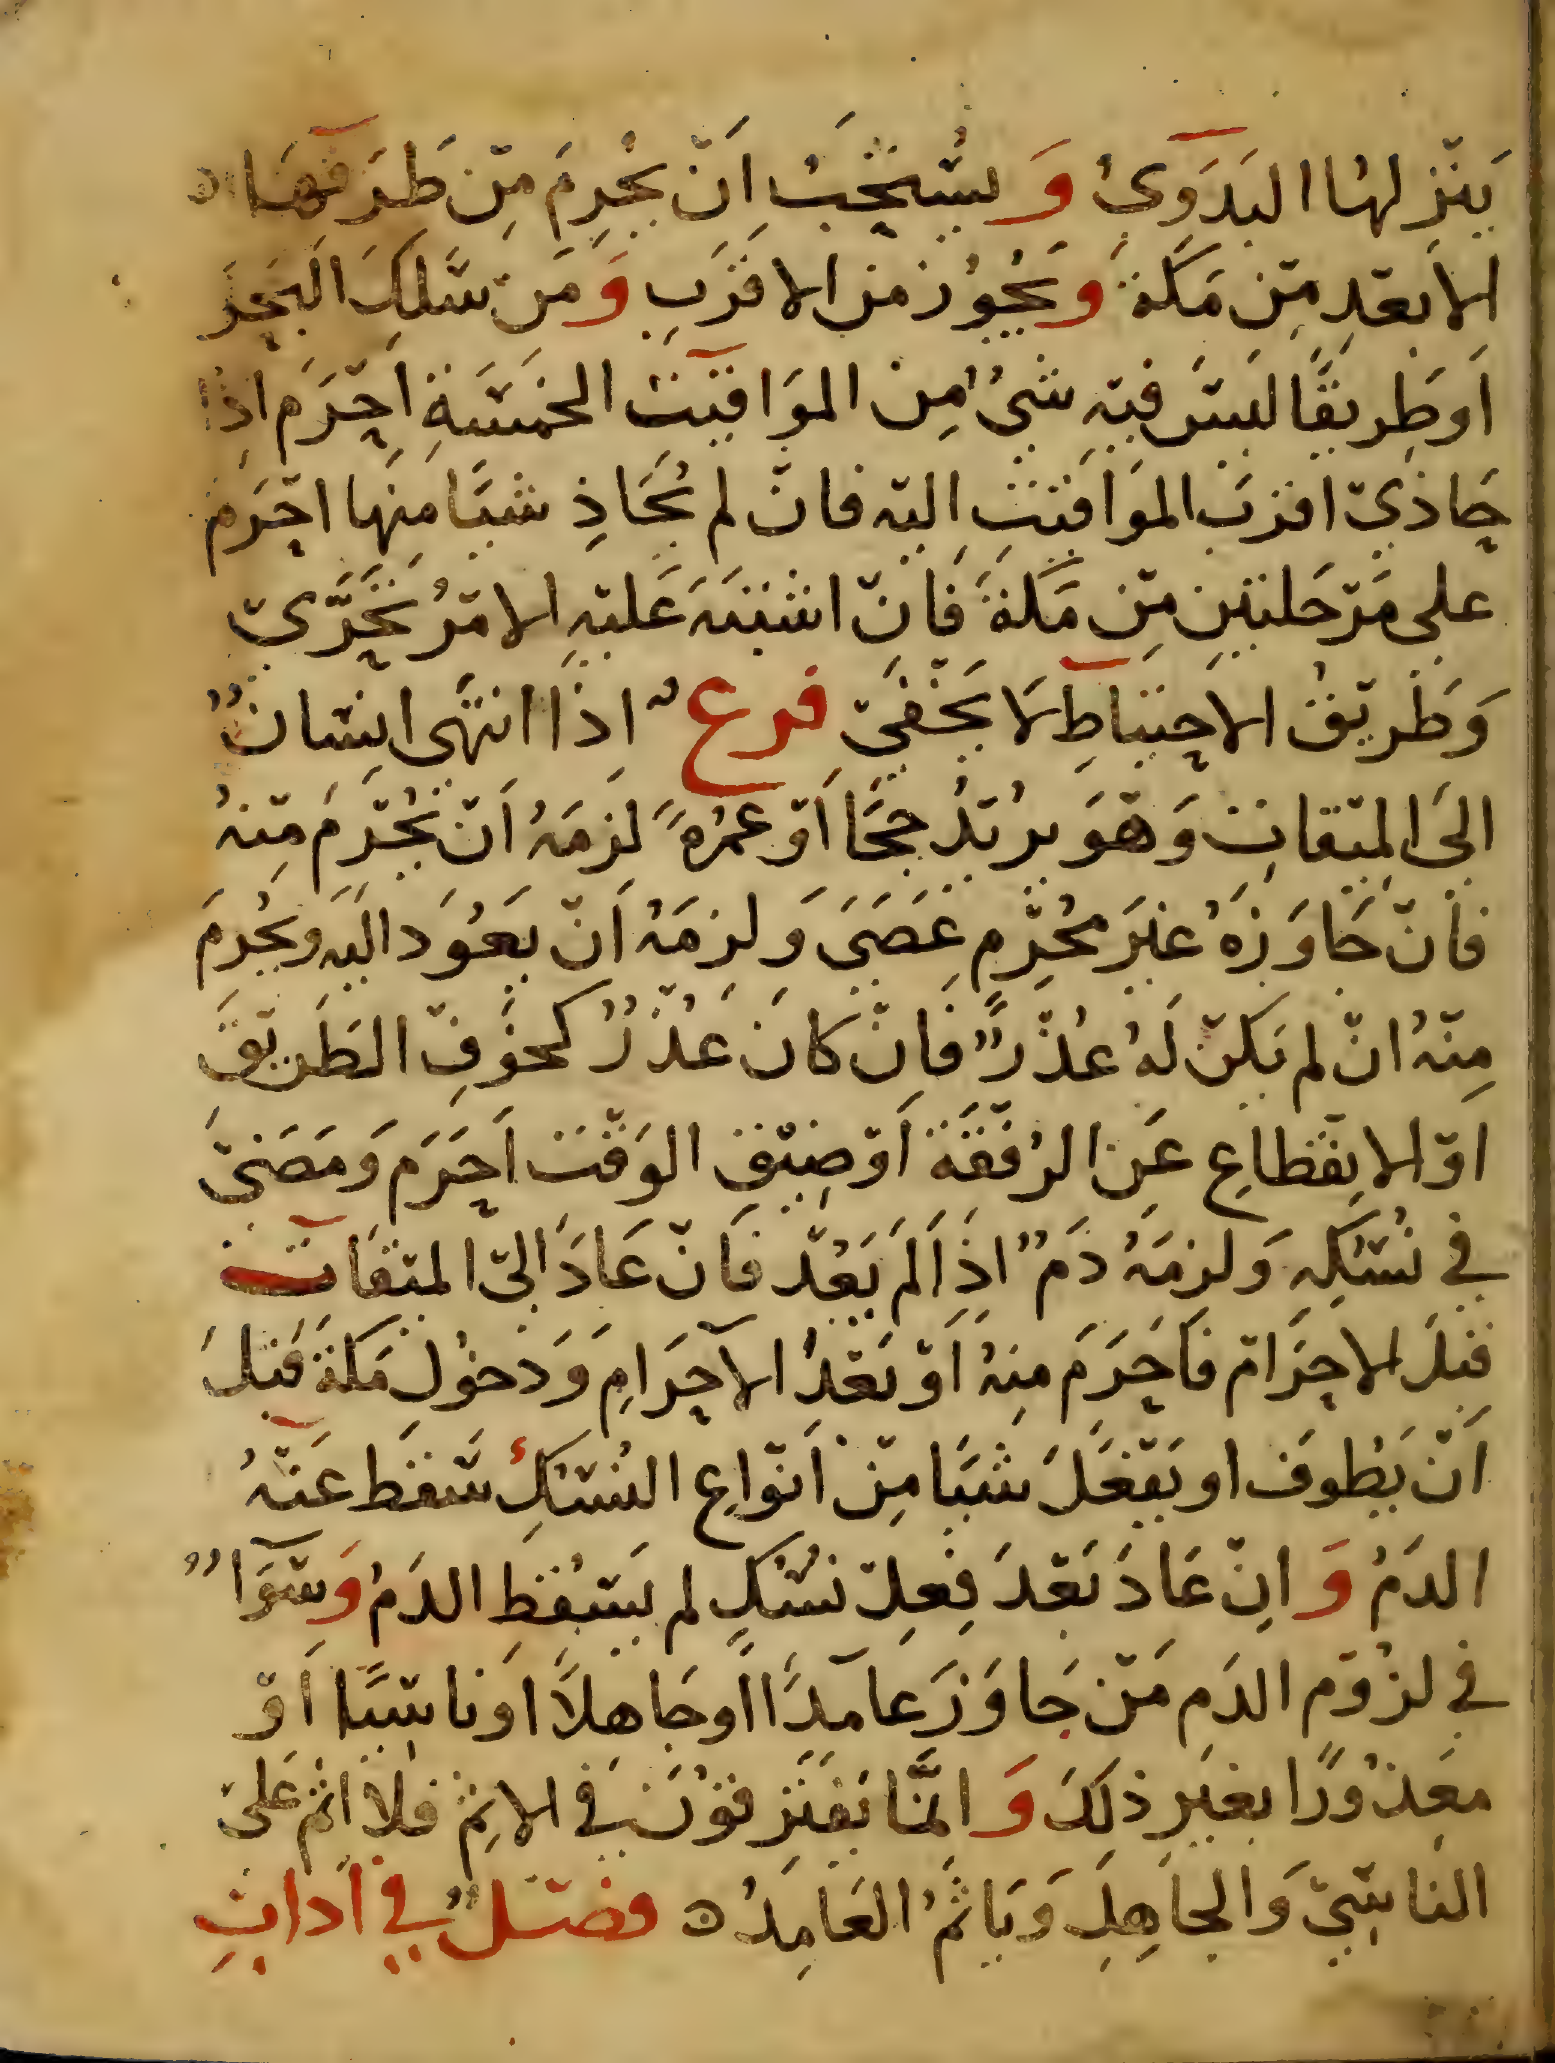 يَنْزِلهُا البَدَوِىُ وَ يسْتَحَبُ اَنْ يحْرِمَ مِنْ طَرَفهَا
الاَبعْدِ مِّن مَكةَ وَيَجُوُز مِن الاقرَبِ وَمَنْ سَلَكَ البَحرَ
اَوطَرِيقًا ليسَ فيْهِ شىُ مِن الموَاقيْت الخمْسَةِ اَحْرَم اذا
حَاذىْ اقرَب الموَاقيتِ اليْه فانْ لم يُحَاذِ شيَئًا مِنهَا احْرَم
على مَرْحَلتينِ مِّن مَكةَ فَانْ اشتبَهَ عَليْهِ الامْرُ تَحَرَّىْ
وَطَرِيْقُ الاحتيَاطِ لَا يَخْفىَْ فرع اذَا انتهَى انسَان
الىَ الميْقاتِ وَهْوَ يرُيْدُ حجًا اَوْ عمُرهً لزِمَهُ اَنْ يُحْرَم مِنْهُ
فاَنْ جَاوَزَهُ غيرَ محُرِّمٍ عَصَىَ وَ لزمَهُ اَنْ يَعوُدَ اليَهِ وَيحُرِمَ
مِنْهُ انْ لم يَكنْ لَهُ عُذْرٌ فاِنْ كانَ عُذْرٌ كخوَفِ الطَرِيْقَ
اوْ الانِقطَاعِ عَنِ الرُفقَةَ اَوْ ضِيْقِ الوَقْتِ اَحَرَم وَمَضَىْ
فى نُسُكِهِ وَلزمَهُ دَمٌ اذَا لَم يَعُدْ فَانْ عَادَ الىْ الميْقاَت
قبَلَ الاحِرَامْ فَاَحَرَمَ مِنهُ اَوْ بَعْدَ الاَحِرَامِ وَدَخوُلِ مَكةَ قبَلَ
اَنْ يَطُوفَ او يَفْعَلَ شيَئًا مِنْ اَنْوَاعِ النُسْكِ سَقَط عَنْهُ
الدَمُ وَ اِنْ عَادَ بَعْدَ فِعِلْ نسُكٍ لم يَسْقُطِ الدَمُ وَسَوَاءٌ
فى لزُوم الدَمِ مَنْ جَاوَزَ عامدًا اَوجَاهلاً اوَ ناسِيًا اَوْ
معَذوُرًا بغَيرِ ذلكَ وَ انمَّا يَفترِقوُنَ فى الاثِمْ فلا اثمَ عَلىَ
الناسِىْ وَالجاَهِلِ وَيَاثَمُ العَامِدُ ه فصْلٌ فى ادَابِ